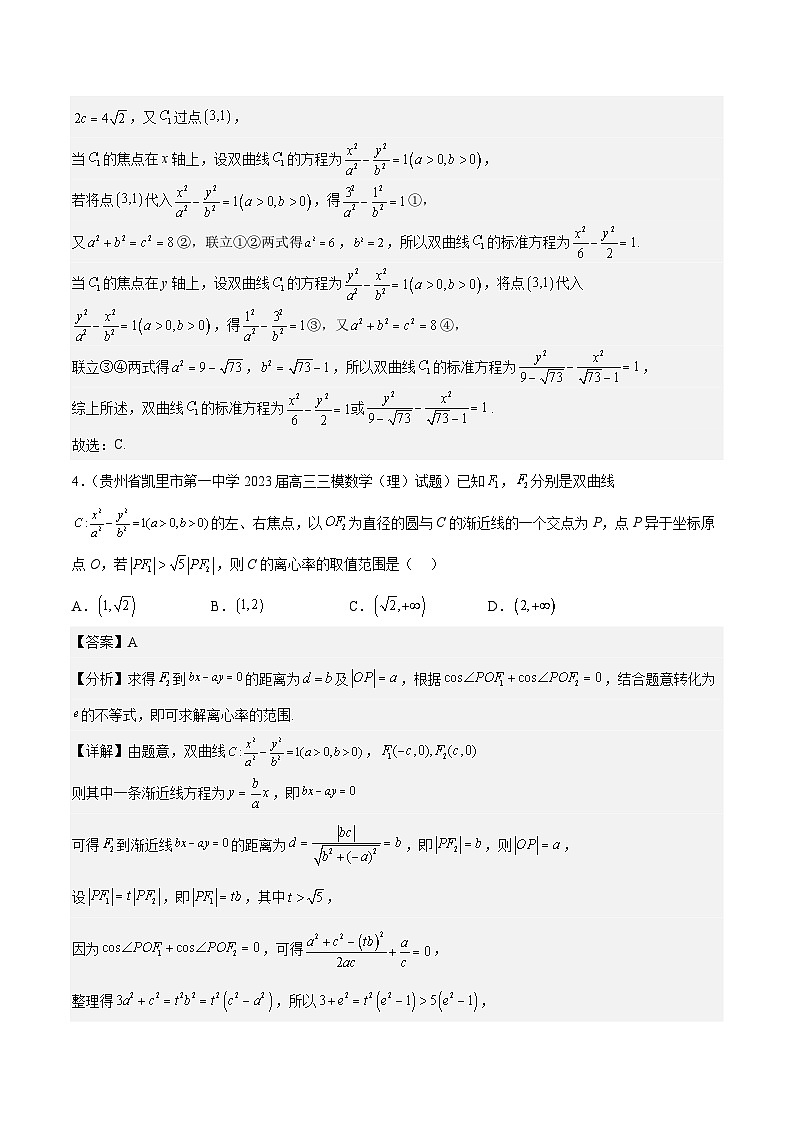 2c = 4√2，又 C₁ 过点 (3,1)，
当 C₁ 的焦点在 x 轴上，设双曲线 C₁ 的方程为 x²/a² − y²/b² = 1(a > 0, b > 0)，
若将点 (3,1) 代入 x²/a² − y²/b² = 1(a > 0, b > 0)，得 3²/a² − 1²/b² = 1①，
又 a² + b² = c² = 8②，联立①②两式得 a² = 6，b² = 2，所以双曲线 C₁ 的标准方程为 x²/6 − y²/2 = 1.
当 C₁ 的焦点在 y 轴上，设双曲线 C₁ 的方程为 y²/a² − x²/b² = 1(a > 0, b > 0)，将点 (3,1) 代入
y²/a² − x²/b² = 1(a > 0, b > 0)，得 1²/a² − 3²/b² = 1③，又 a² + b² = c² = 8④，
联立③④两式得 a² = 9 − √73，b² = √73 − 1，所以双曲线 C₁ 的标准方程为 y²/(9 − √73) − x²/(√73 − 1) = 1，
综上所述，双曲线 C₁ 的标准方程为 x²/6 − y²/2 = 1或 y²/(9 − √73) − x²/(√73 − 1) = 1 .
故选：C.
4.（贵州省凯里市第一中学 2023 届高三三模数学（理）试题）已知 F₁，F₂ 分别是双曲线
C : x²/a² − y²/b² = 1(a > 0, b > 0) 的左、右焦点，以 OF₂ 为直径的圆与 C 的渐近线的一个交点为 P，点 P 异于坐标原
点 O，若 |PF₁| > √5|PF₂|，则 C 的离心率的取值范围是（ ）
A. (1, √2) B. (1, 2) C. (√2, +∞) D. (2, +∞)
【答案】A
【分析】求得 F₂ 到 bx − ay = 0 的距离为 d = b 及 |OP| = a，根据 cos∠POF₁ + cos∠POF₂ = 0，结合题意转化为
e 的不等式，即可求解离心率的范围.
【详解】由题意，双曲线 C : x²/a² − y²/b² = 1(a > 0, b > 0)，F₁(−c, 0), F₂(c, 0)
则其中一条渐近线方程为 y = (b/a)x，即 bx − ay = 0
可得 F₂ 到渐近线 bx − ay = 0 的距离为 d = |bc|/√(b² + (−a)²) = b，即 |PF₂| = b，则 |OP| = a，
设 |PF₁| = t|PF₂|，即 |PF₁| = tb，其中 t > √5，
因为 cos∠POF₁ + cos∠POF₂ = 0，可得 (a² + c² − (tb)²)/2ac + a/c = 0，
整理得 3a² + c² = t²b² = t²(c² − a²)，所以 3 + e² = t²(e² − 1) > 5(e² − 1)，